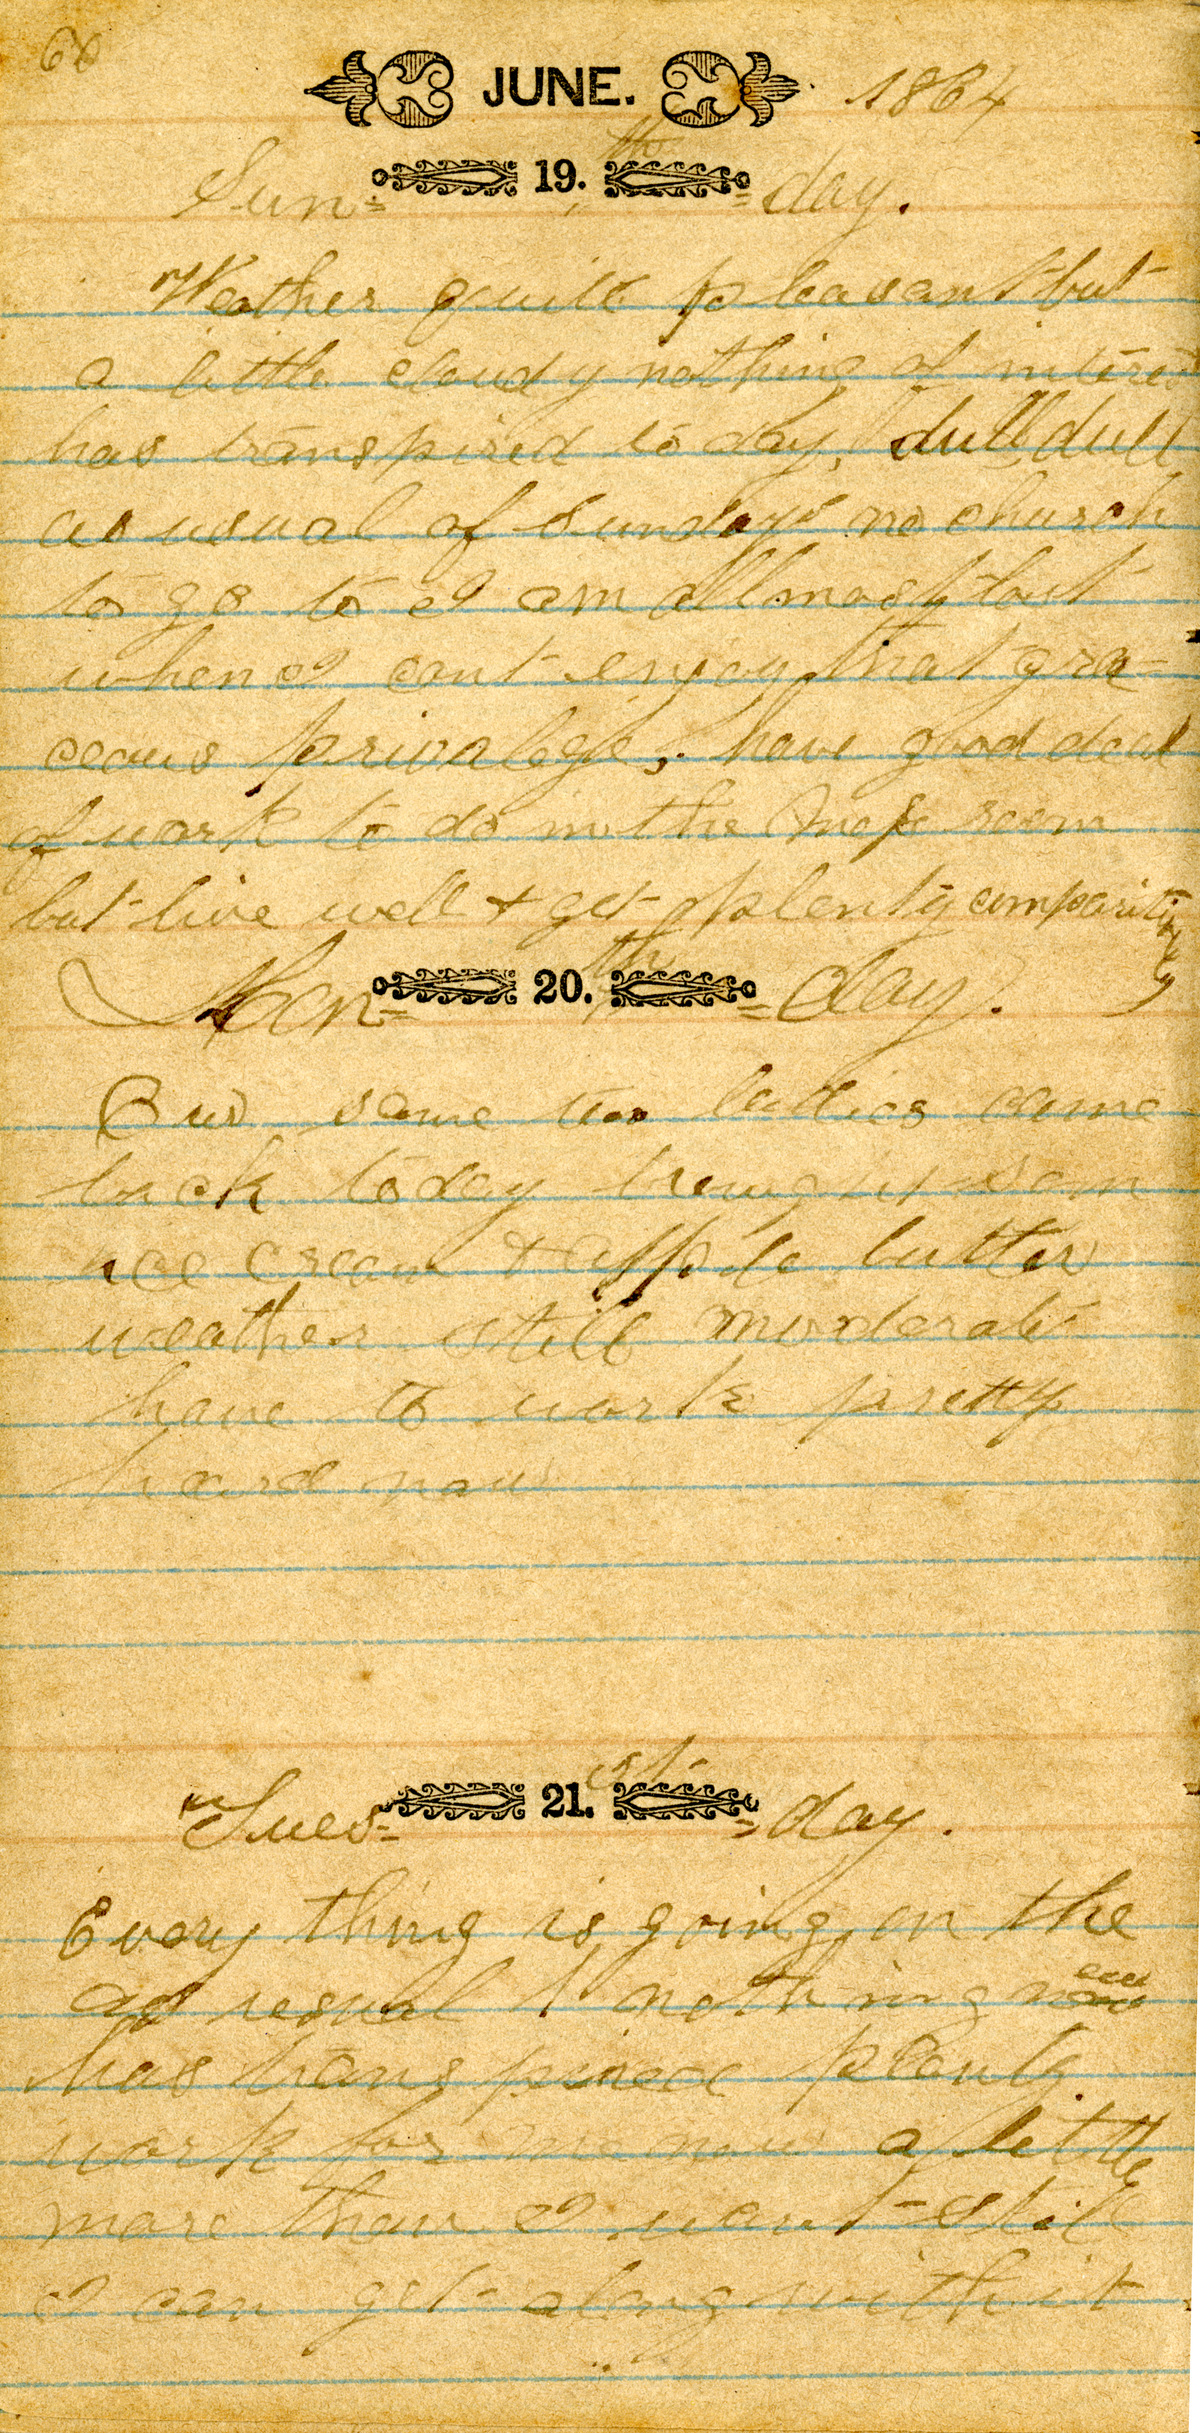 68
JUNE. 1864
Sun= 19.th =day.
Weather quite pleasant but
a little cloudy nothing of interest
has transpired to day, dull dull
as usual of Sundays no church
to go to I am allmost lost
when I cant enjoy that gra-
ceous privalege, have good deal
of work to do in the room
but live well & get plenty comparitively
Mon= 20.th =day.
Our same two ladies came
back today brought som
ice cream & apple butter
weather still moderate
have to work pretty
hard now
Tues= 21.st =day.
Every thing is going on the
as usual & nothing new
has transpired plenty
work for me now a little
more than I want still
I can get along with it